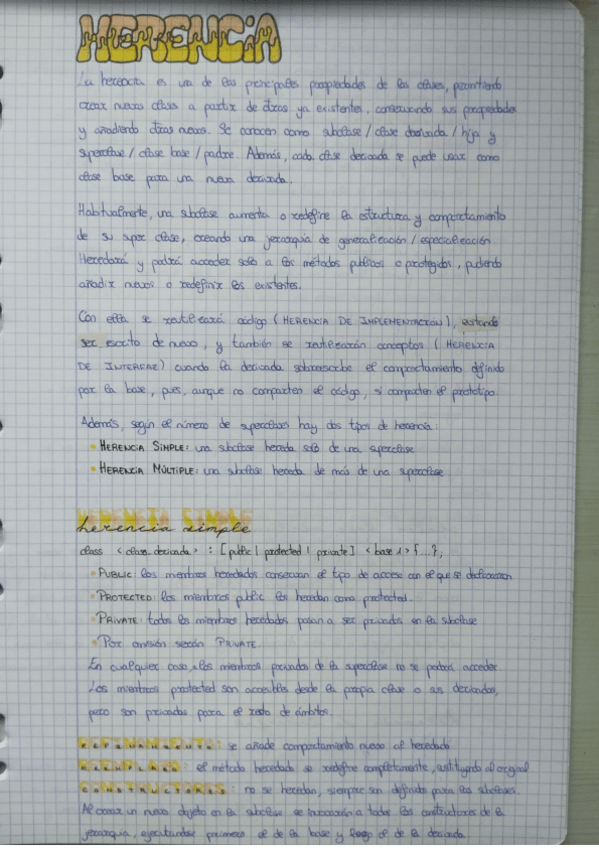 HERENCIA
La herencia es una de las principales propiedades de las clases, permitiendo
crear nuevas clases a partir de otras ya existentes, conservando sus propiedades
y añadiendo otras nuevas. Se conocen como subclase / clase derivada / hija y
superclase / clase base / padre. Además, cada clase derivada se puede usar como
clase base para una nueva derivada.
Habitualmente, una subclase aumenta o redefine la estructura y comportamiento
de su super clase, creando una jerarquía de generalización / especialización.
Heredará y podrá acceder solo a los métodos públicos o protegidos, pudiendo
añadir nuevos o redefinir los existentes.
Con ella se reutilizará código (HERENCIA DE IMPLEMENTACIÓN), evitando
ser escrito de nuevo, y también se reutilizarán conceptos (HERENCIA
DE INTERFAZ) cuando la derivada sobreescribe el comportamiento definido
por la base, pues, aunque no comparten el código, si comparten el prototipo.
Además, según el número de superclases hay dos tipos de herencia:
• HERENCIA SIMPLE: una subclase hereda solo de una superclase
• HERENCIA MÚLTIPLE: una subclase hereda de más de una superclase
HERENCIA SIMPLE
herencia simple
class <clase_derivada> : [public | protected | private] <base 1> {...};
• PUBLIC: los miembros heredados conservan el tipo de acceso con el que se declararon
• PROTECTED: los miembros public los heredan como protected.
• PRIVATE: todos los miembros heredados pasan a ser privados en la subclase
• Por omisión serán PRIVATE
En cualquier caso, los miembros privados de la superclase no se podrá acceder
Los miembros protected son accesibles desde la propia clase o sus derivadas,
pero son privadas para el resto de ámbitos.
REFINAMIENTO: se añade comportamiento nuevo al heredado
REEMPLAZO: el método heredado se redefine completamente, sustituyendo al original
CONSTRUCTORES: no se heredan, siempre son definidos para las subclases.
Al crear un nuevo objeto en la subclase se invocarán a todos los constructores de la
jerarquía, ejecutándose primero el de la base y luego el de la derivada.